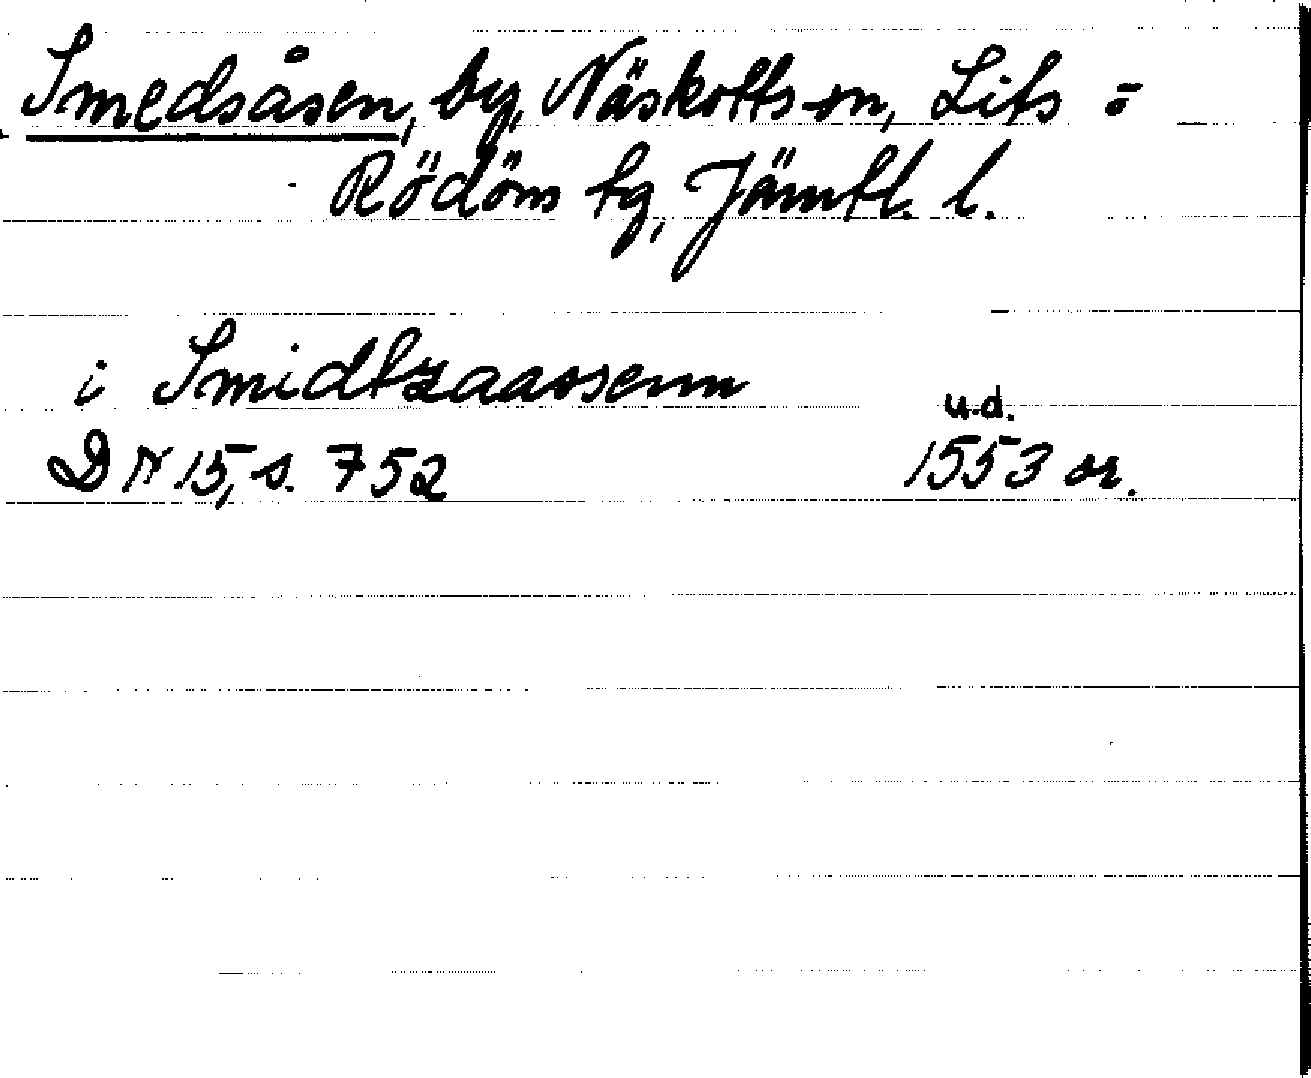 Smedsåsen, by, Näskotts sn, Lits =
Rödöns tg, Jämtl. l.
i Smidtzaassenn
u.d.
DN 15, s. 752 1553 or.